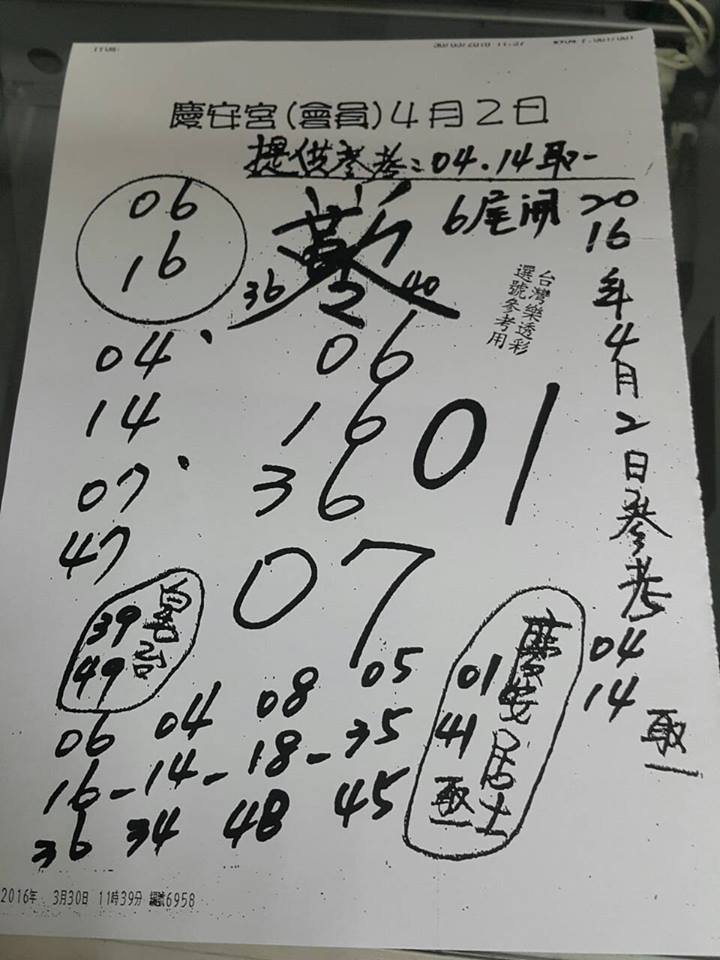 慶安宮(會員)4月2日
提供參考:04.14取一
06
16
36 2 40
6尾開
2016年4月2日參考
04
14
取一
台灣樂透彩
選號參考用
04
14
07
47
06
16
36
01
07
39
49
06 04 08 05
16-14-18-35
36 34 48 45
慶安居士
01
41
取一
2016年 3月30日 11時39分 編號6958